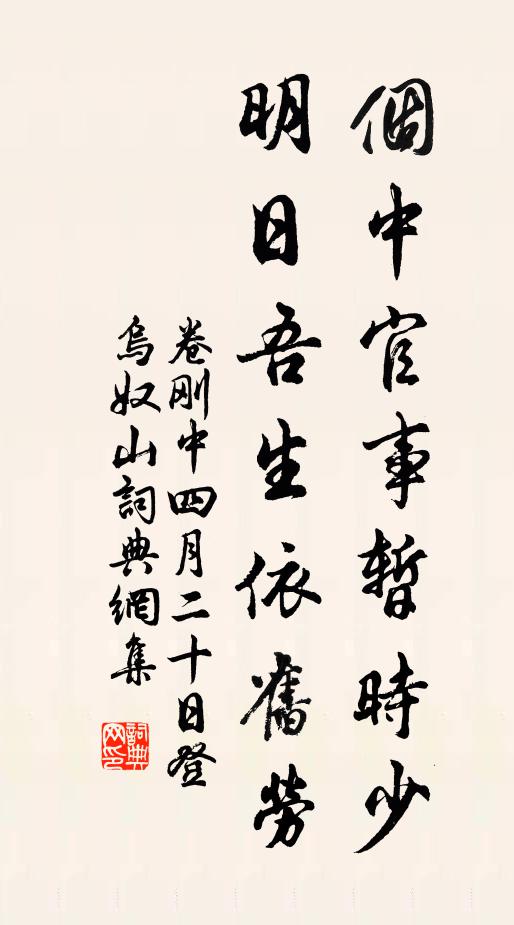 個中官事暫時少
明日吾生依舊勞
卷剛中四月二十日登
烏奴山詞典網集
詞典
网印